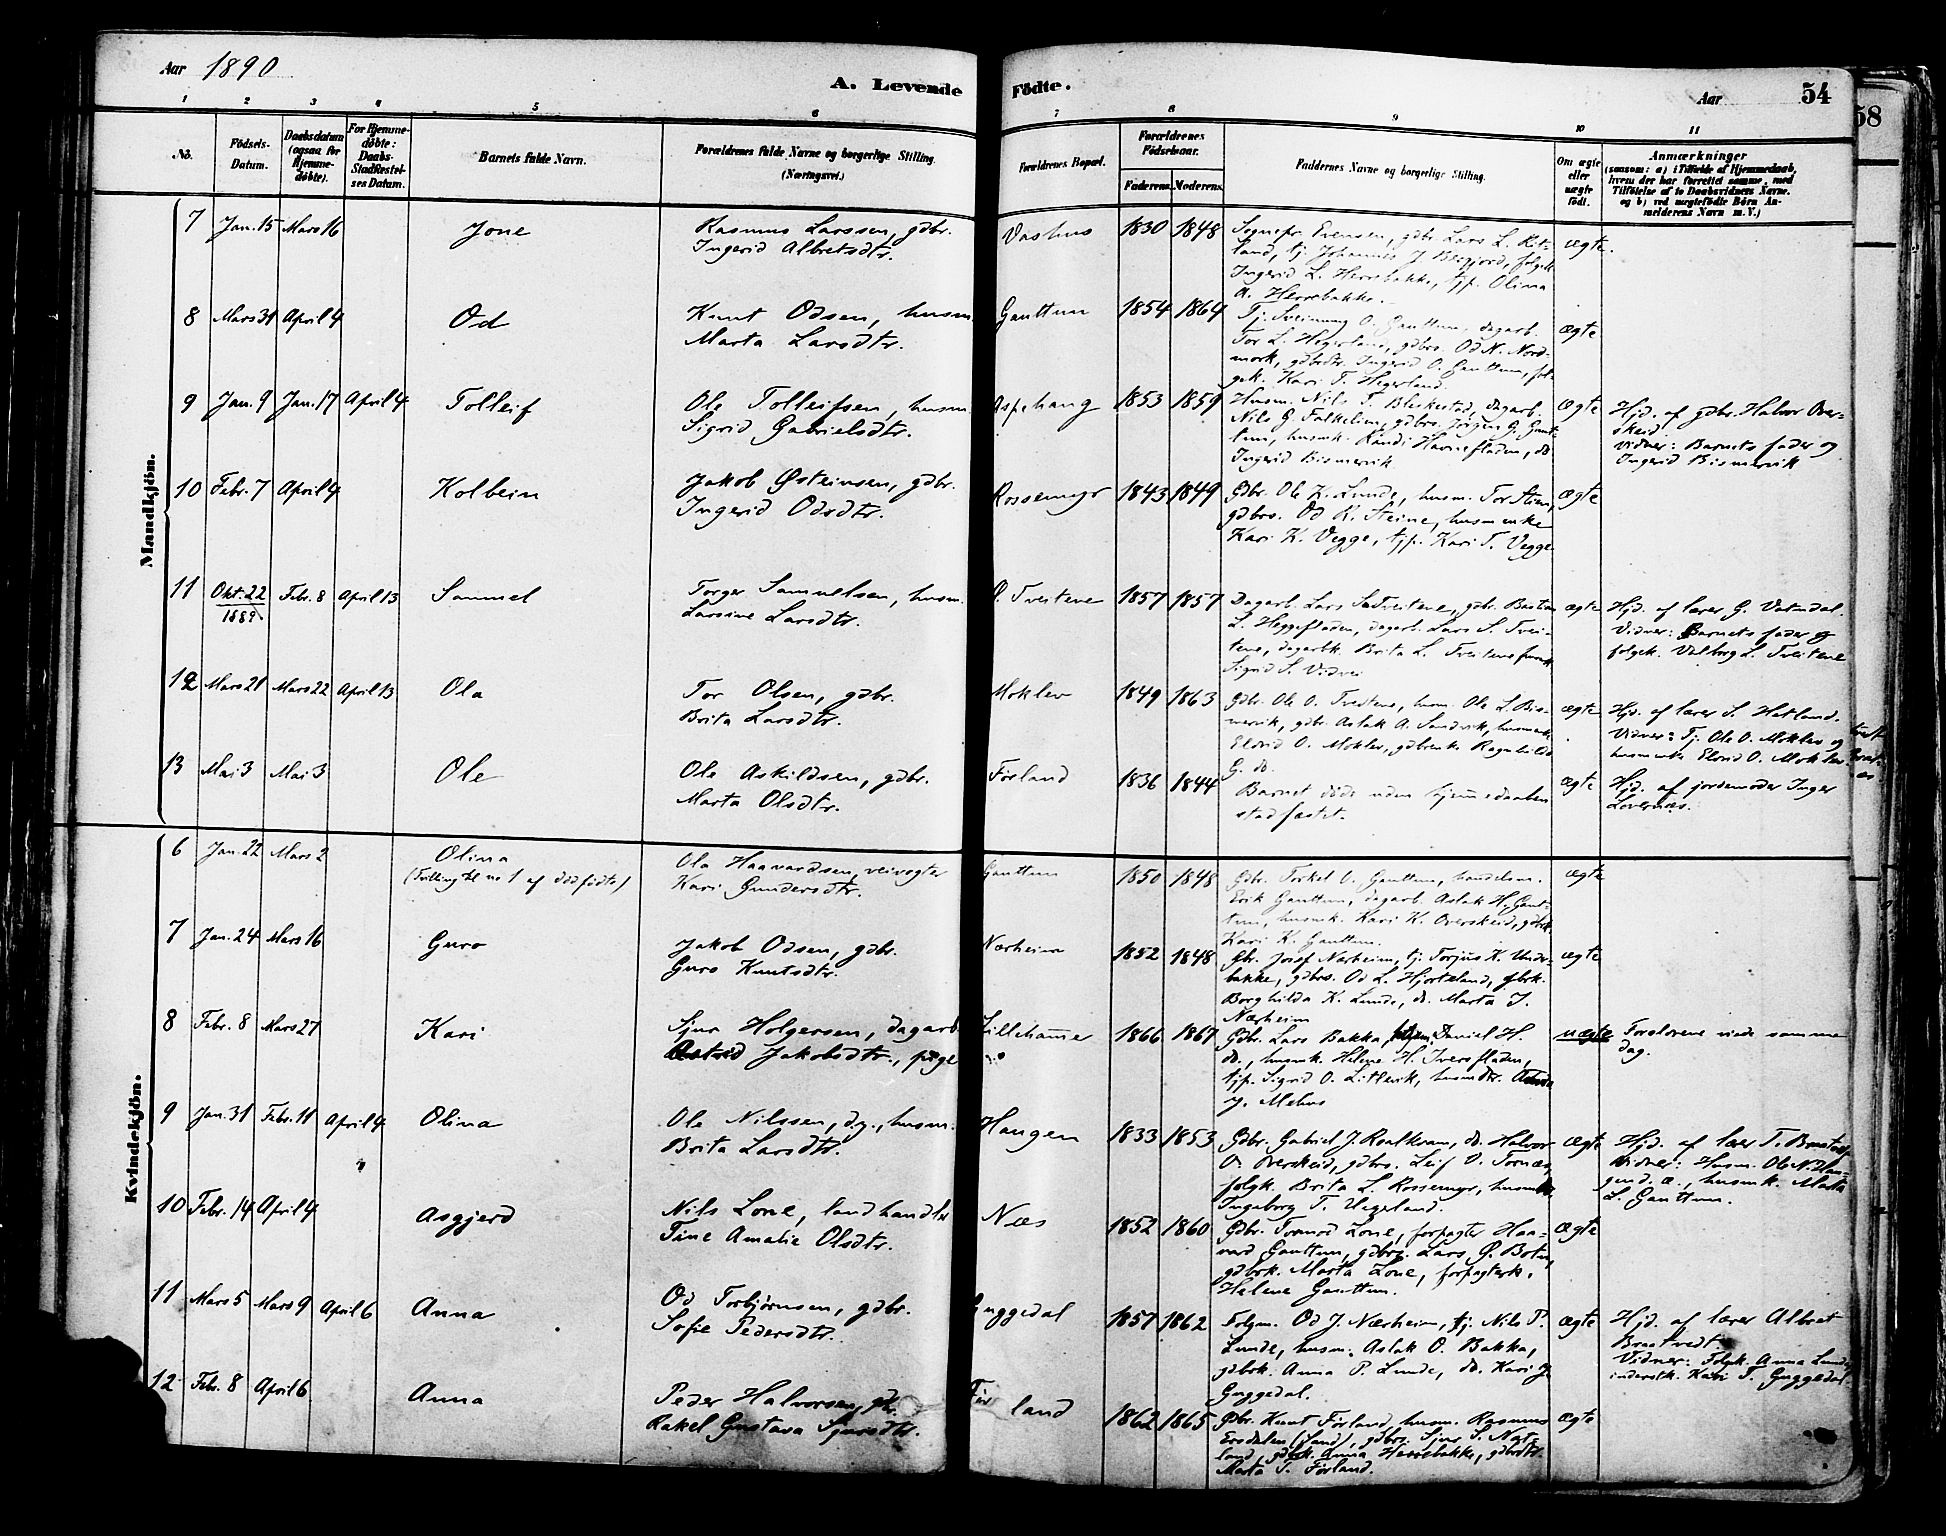 Aar 1890
A. Levende Födte.
Aar 54
58
1 2 3 4 5 6 7 8 9 10 11
No.
Födsels-Datum.
Daabsdatum (ogsaa for Hjemme-döbte).
For Hjemme-döbte: Daabs-Stadfæstel-ses Datum.
Barnets fulde Navn.
Forældrenes fulde Navne og borgerlige Stilling. (Næringsvei.)
Forældrenes Bopæl.
Forældrenes Födselsaar.
Faderens. Moderens.
Faddernes Navne og borgerlige Stilling.
Om ægte eller uægte födt.
Anmærkninger
(saasom: a) i Tilfælde af Hjemmedaab,
hvem der har forrettet samme, med
Tilföielse af to Daabsvidners Navne.
og b) ved uægtefödte Börn An-
melderens Navn m. V.)
Mandkjön.
7 Jan. 15 Mars 16 Jone
Rasmus Larssen, gdbr.
Ingerid Albretsdtr.
Vashus 1830 1848
Sognepr. Evensen, gdbr. Lars L.
land, tj. Johannes J. folgek.
Ingerid L. Herrebakke, tjp. Olina
A. Herrebakke.
ægte.
8 Mars 31 April 4 Od
Knut Odsen, husm.
Marta Larsdtr.
Gauttun 1854 1864
Tj. Sveinung O. Gauttun, dagarb.
Tor L. Hegerland, gdbrs. Od K. Nord-
mork, gdbrdtr. Ingerid O. Gauttun, fol-
gek. Kari T. Hegerland.
ægte
9 Jan. 9 Jan. 17 April 4 Tolleif
Ole Tolleifsen, husm.
Sigrid Gabrielsdtr.
Aspehaug 1853 1859
Husm. Nils T. Bleskestad, dagarb.
Nils G. Falkelin, gdbrs. Jørgen G. Gaut-
tun, husmk. Randi Havrefladen, do.
Ingerid Bismervik
ægte
Hjd. af gdbr. Halvor Over-
skeid
Vidner: Barnets fader og
Ingerid Bismervik
10 Febr. 7 April 4 Kolbein
Jakob Østeinsen, gdbr.
Ingerid Odsdtr.
Rossemyr 1843 1849
Gdbr. Ole K. Lunde, husm. Tor Stien,
gdbrs. Od R. Steine, husm enke
Kari K. Vegge, tjp. Kari T. Vegge
ægte
11 Okt. 22 1889 Febr. 8 April 13 Samuel
Torger Samuelsen, husm.
Larsine Larsdtr.
Ø. Tveitene 1857 1857
Dagarb. Lars S. Tveitene, gdbr. Bastian
L. Heggefladen, dagarb. Lars S. Tvei-
tene, dagarbk. Brita L. Tveitene
Sigrid S. Vidvei
ægte
Hjd. af lærer G. Vatndal.
Vidner: Barnets fader og
folgek. Valborg L. Tveitene
12 Mars 21 Mars 22 April 13 Ola
Tor Olsen, gdbr.
Brita Larsdtr.
Moklev 1849 1863
Gdbr. Ole O. Tveitene, husm. Ole L. Bis-
mervik, gdbr. Aslak A. Sandvik, husmenke
Elevid O. Moklev, gdbrenke Ragnhilda
G. do.
ægte
Hjd. af lærer S. Hetland.
Vidner: Tj. Ole O. Moklev og
husmenke Elevid O. Moklev
13 Mai 3 Mai 3 Ole
Ole Askildsen, gdbr.
Marta Olsdtr.
Førland 1836 1844
Barnet døde uden hjemmedaaben
stadfæstet.
ægte
Hjd. af jordemoder Inger
Lovernæs.
Kvindekjön.
6 Jan. 22 Mars 2 Olina
(Tvilling til no 1 af dødfødte)
Ola Haavardsen, veivogter
Kari Gundersdtr.
Gauttun 1850 1848
Gdbr. Torkel O. Gauttun, handelsm.
Erik Gauttun, dagarb. Aslak H. Gaut-
tun, husmk. Kari K. Overskeid, gdbrk.
Kari K. Gauttun.
ægte
7 Jan. 24 Mars 16 Guro
Jakob Odsen, gdbr.
Guro Knutsdtr.
Nærheim 1852 1848
Gbr. Josef Nærheim, tj. Torjus K. Under-
bakke, gdbrs. Od L. Hjorteland, gbrk.
Borghilda K. Lunde, do. Marta J.
Nærheim
ægte
8 Febr. 8 Mars 27 Kari
Sjur Holgersen, dagarb
Astrid Jakobsdtr., pige
Lillehamre 1866 1867
Gdbr. Lars Bakka, Daniel H.
do., husmk. Helene H. Tversfladen,
tjp. Sigrid O. Litlevik, husmdtr.
J. Mehus
uægte
Forældrene viede samme
dag.
9 Jan. 31 Febr. 11 April 4 Olina
Ole Nilssen, d.y., husm.
Brita Larsdtr.
Haugen 1833 1853
Gdbr. Gabriel J. Roalkvam, do. Halvor
O. Overskeid, gdbrs. Leif O. Tornæs,
folgk. Brita L. Rossemyr, husmk.
Ingeborg T. Hegerland.
ægte
Hjd. af lærer T. Bratveit
Vidner: Husm. Ole N. Hau-
gen d. æ., husmk. Marta
L. Gauttun.
10 Febr. 14 April 4 Asgjerd
Nils Lone, landhandler
Tine Amalie Olsdtr.
Næs 1852 1860
Gdbr. Tormod Lone, forpagter Haa-
vard Gauttun, gdbrs. Lars Ø. Botn,
gdbrk. Marta Lone, forpagterk.
Helene Gauttun.
ægte
11 Mars 5 Mars 9 April 6 Anna
Od Torbjørnsen, gdbr.
Sofie Pedersdtr.
Guggedal 1857 1862
Folgm. Od J. Nærheim, tj. Nils P.
Lunde, husm. Aslak O. Bakka,
gdbrk. Anna P. Lunde, do. Kari J.
Guggedal.
ægte
Hjd. af lærer Albret
Bratvedt.
Vidner: Folgk. Anna Lunde,
inderstk. Kari T. Guggedal.
12 Febr. 8 April 6 Anna
Peder Halvorsen, gbr.
Rakel Gustava Sjursdtr.
Førland 1862 1865
Gdbr. Knut Førland, husm. Rasmus
Ersdalen (Sand), gdbrs. Sjur S. Nat-
land, gdbrk. Anna Herrebakke, gdbrdtr.
Marta T. Førland.
ægte